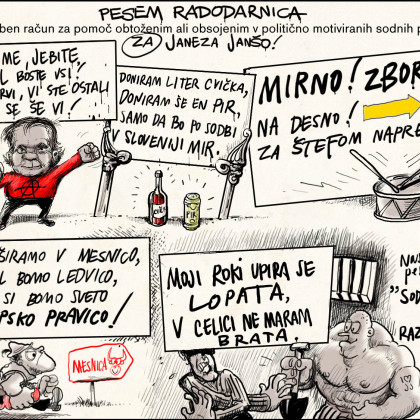 PESEM RADODARNICA
ben račun za pomoč obtoženim ali obsojenim v politično motiviranih sodnih p
ZA JANEZA JANŠO!
ME, JEBITE,
L BOSTE VSI!
RVI, VI STE OSTALI
SE ŠE VI!
DONIRAM LITER CVIČKA,
DONIRAM ŠE EN PIR,
SAMO DA BO PO SODBI
V SLOVENIJI MIR.
MIRNO! ZBOR
NA DESNO!
ZA ŠTEFOM NAPRE
ŠIRAMO V MESNICO,
L BOMO LEDVICO,
SI BOMO SVETO
PSKO PRAVICO!
MESNICA
MOJI ROKI UPIRA SE
LOPATA,
V CELICI NE MARAM
BRATA.
"SOD
RAZ